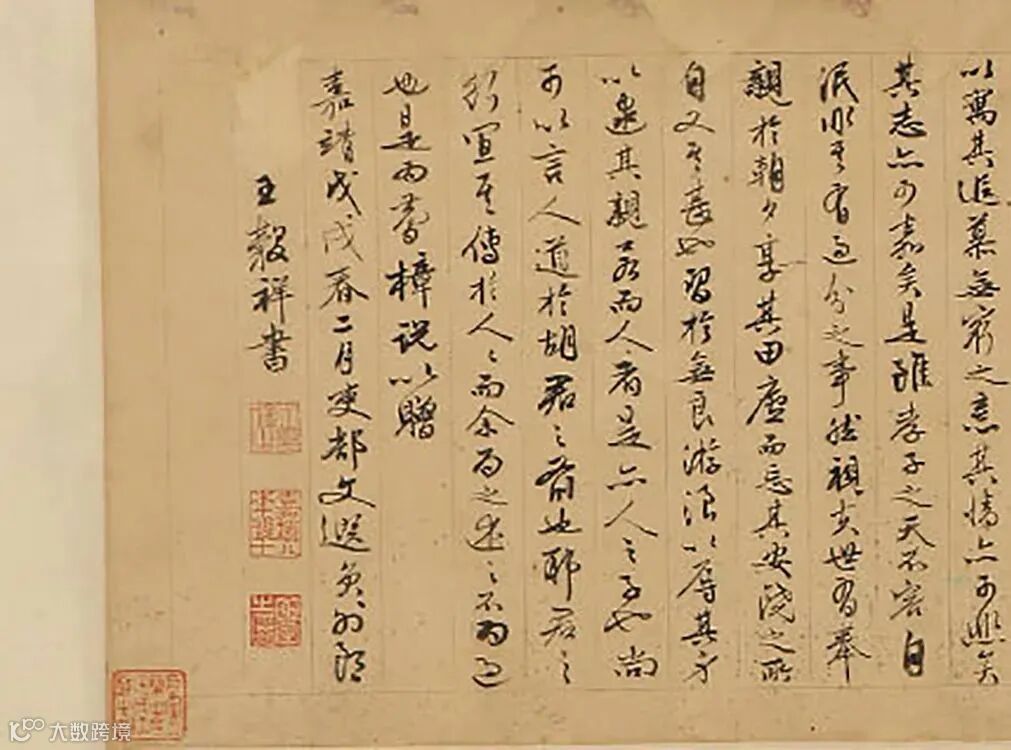 以寫其追慕無窮之意其情亦可悲矣
其志亦可嘉矣是雖孝子之天不容自
泯非有過分之事然視去世有舉
親於朝夕享其田廬而忘其安後之所
自又其甚也習於無良游浪以辱其身
以逮其親若而人者是亦人之子也尚
可以言人道於胡君之前也耶君之
行宜其傳於人人而余為之述之不為過
也是為耆樟說以贈
嘉靖戊戌春二月吏部文選員外郎
王穀祥書
大数跨境